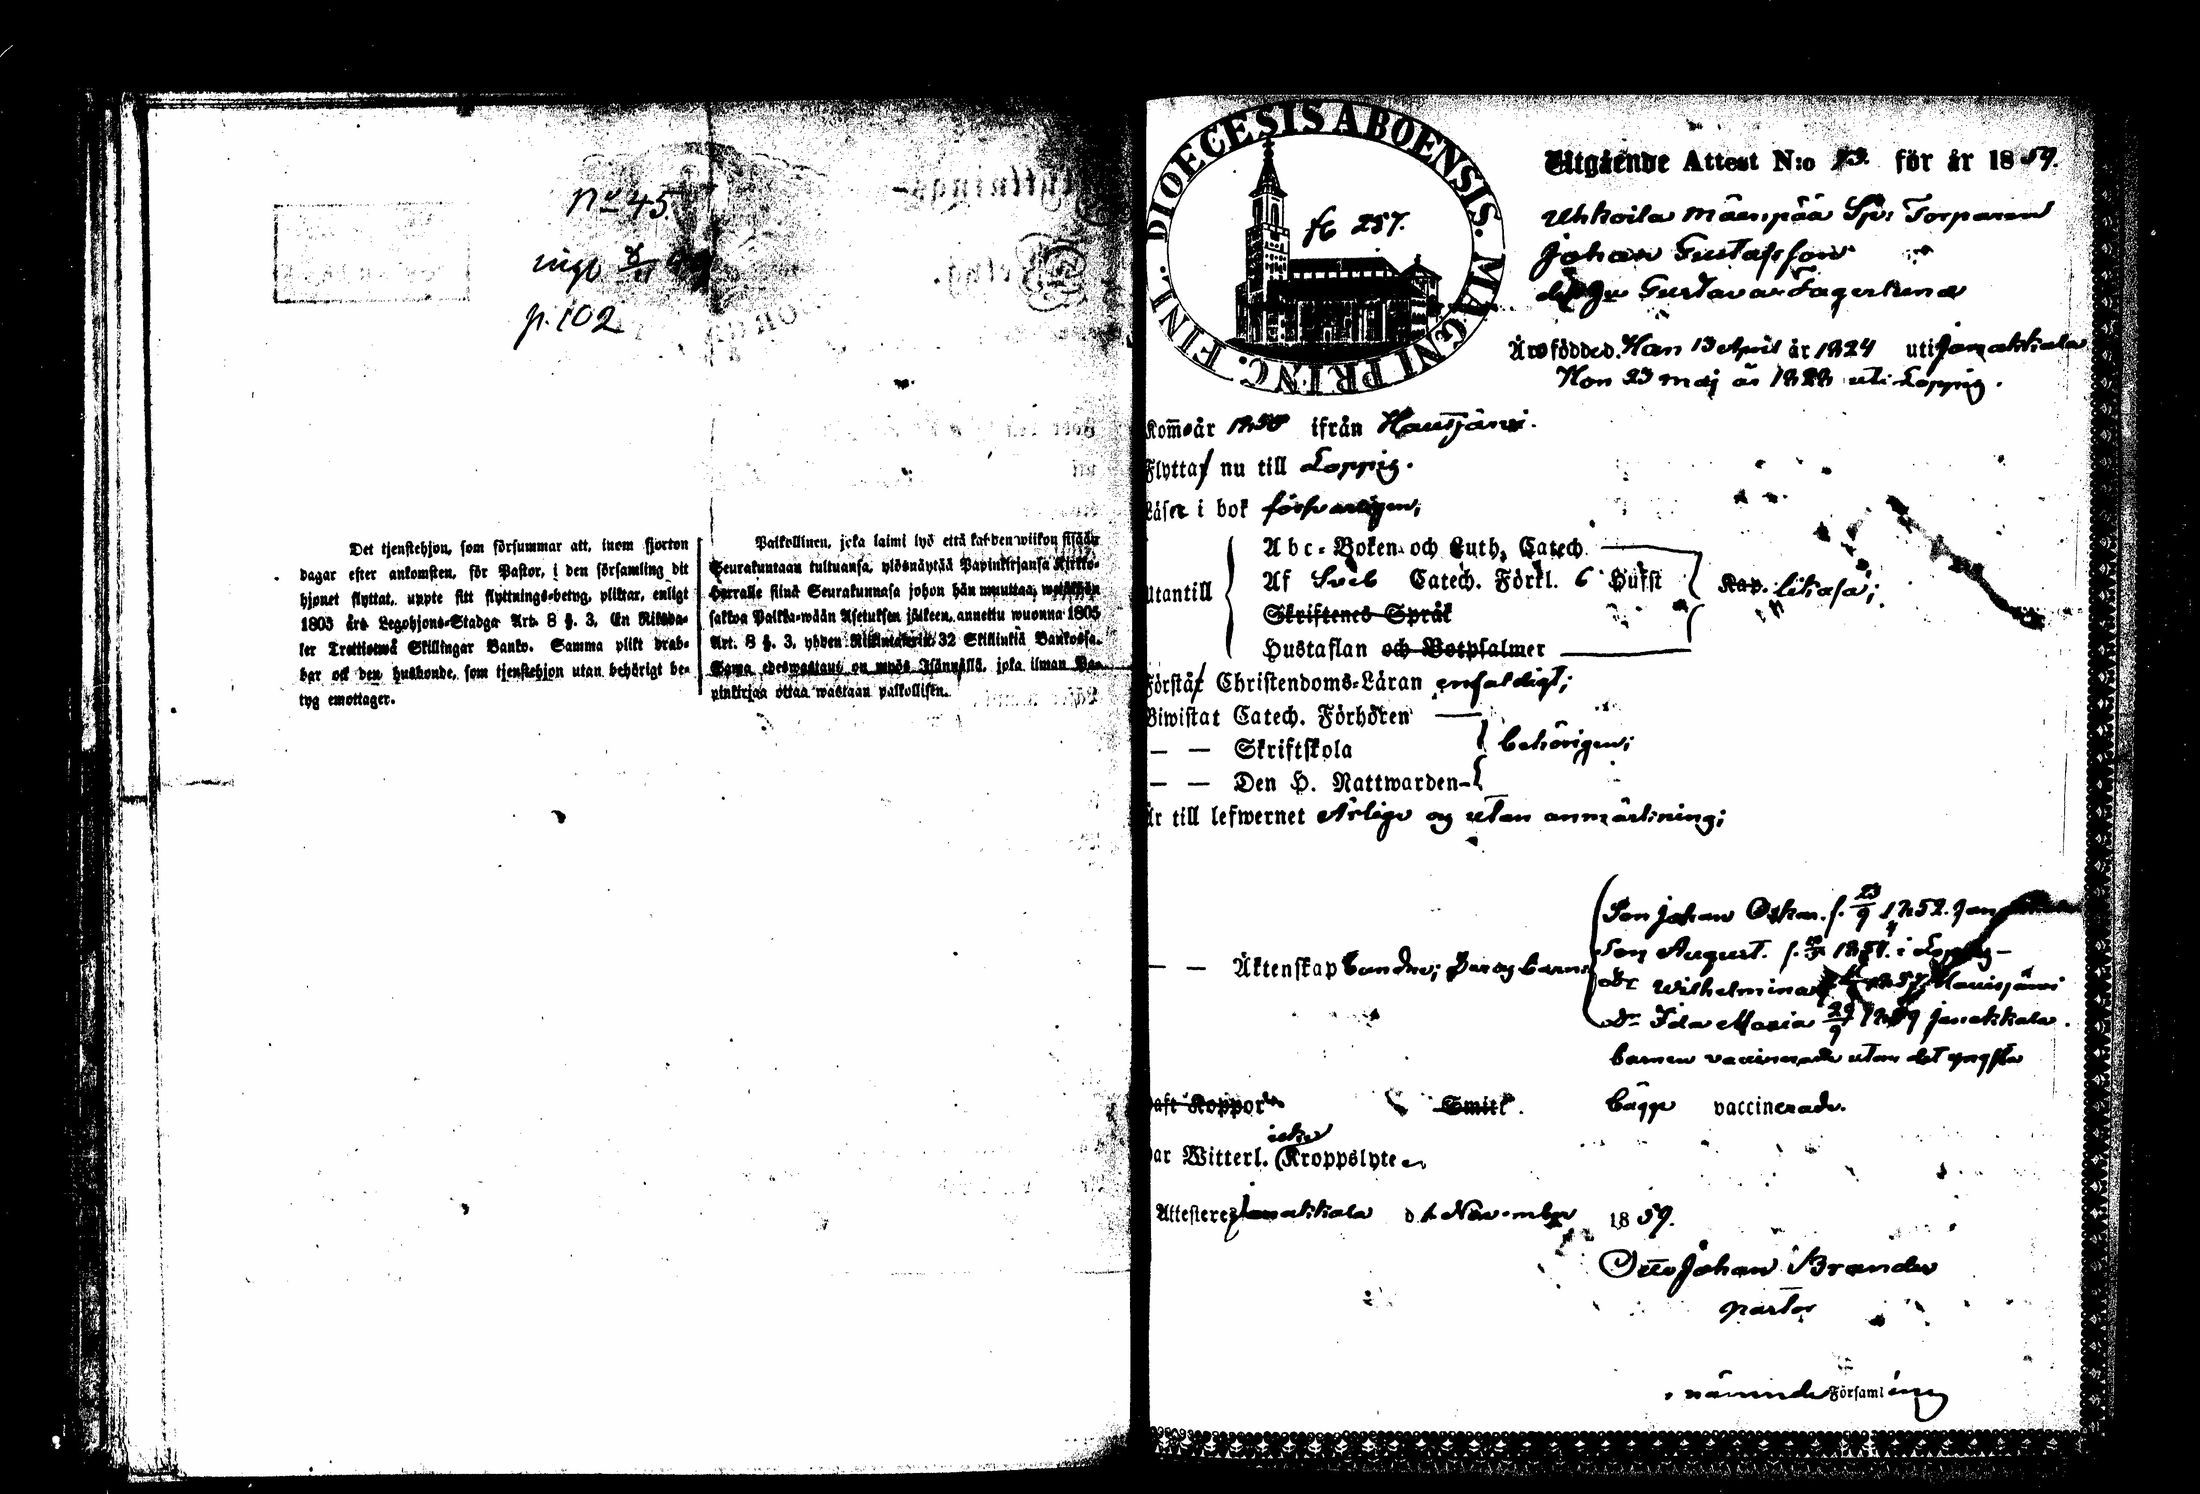 No 45.
p. 102
Det tjenstehjon, som försummar att, inom fjorton
dagar efter ankomsten, för Pastor, i den församling dit
hjonet flyttat, uppte sitt flyttnings-betyg, pliktar, enligt
1805 års Legohjons-Stadga Art. 8 §. 3, En Riksda-
ler Trettiotwå Skillingar Banko. Samma plikt drab-
bar ock den husbonde, som tjenstehjon utan behörigt be-
tyg emottager.
Palkollinen, joka laimi lyö että kahden wiikon sisään
Seurakuntaan tultuansa, ylösnäytää Papinkirjansa Kirkko-
Herralle siinä Seurakunnasa johon hän muuttaa,
sakkoa Palkka-wään Asetuksen jälkeen, annettu wuonna 1805
Art. 8 §. 3, yhden 32 Skillinkiä Bankossa.
Sama edeswastaus on myös Isännällä, joka ilman Pa-
pinkirjaa ottaa wastaan palkollisen.
DIOECESIS ABOENSIS. MAGNI PRINC. FINL.
fC 287.
Utgående Attest N:o för år 1859.
Uhkoila Mäenpää Torparen
Johan Gustafsson
Gustava Fagerlund
Äro födded. Han 13 April år 1824 uti Janakkala
Hon 23 Maj år 1828 uti Loppis.
Kommo år 1858 ifrån Hausjärvi.
Flytta nu till Loppis.
Läser i bok försvarligen;
Utantill
Abc-Boken och Luth. Catech.
Af Sveb Catech. Förkl. 6 Hufst
Skriftenes Språk
Hustaflan och Botpsalmer
Förstår Christendoms-Läran enfaldigt;
Biwistat Catech. Förhören
— — Skriftskola behörigen;
— — Den H. Nattwarden
Är till lefwernet Ärlige og utan anmärkning;
Son Johan Oskar f. 23/9 1852
Son August f. i Loppis
— — Äktenskap bundne;
Wilhelmina Hausjärvi
Dr Ida Maria 29/9 1859 Janakkala.
barnen vaccinerade utom det yngsta
Haft Koppor Smitt. bägge vaccinerade.
icke
Har Witterl. Kroppslyte
Attesteres Janakkala d. November 1859.
Otto Johan Brander
pastor
i nämnde Församling